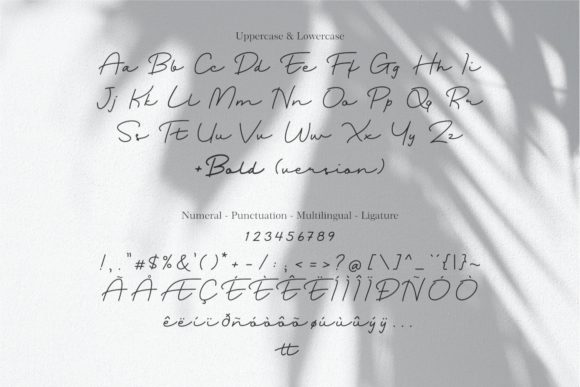 Uppercase & Lowercase
Aa Bb Cc Dd Ee Ff Gg Hh Ii
Jj Kk Ll Mm Nn Oo Pp Qq Rr
Ss Tt Uu Vv Uu Ww Xx Yy Zz
+Bold (version)
Numeral - Punctuation - Multilingual - Ligature
123456789
!,."#$%&'()*+-/:;<=>?@[\]^_`¨{|}~
ÃÅÆÇÉÈÊËÍÌÎÏÐÑÓÒ
êëíïðñóòôõøúùûýÿ...
tt